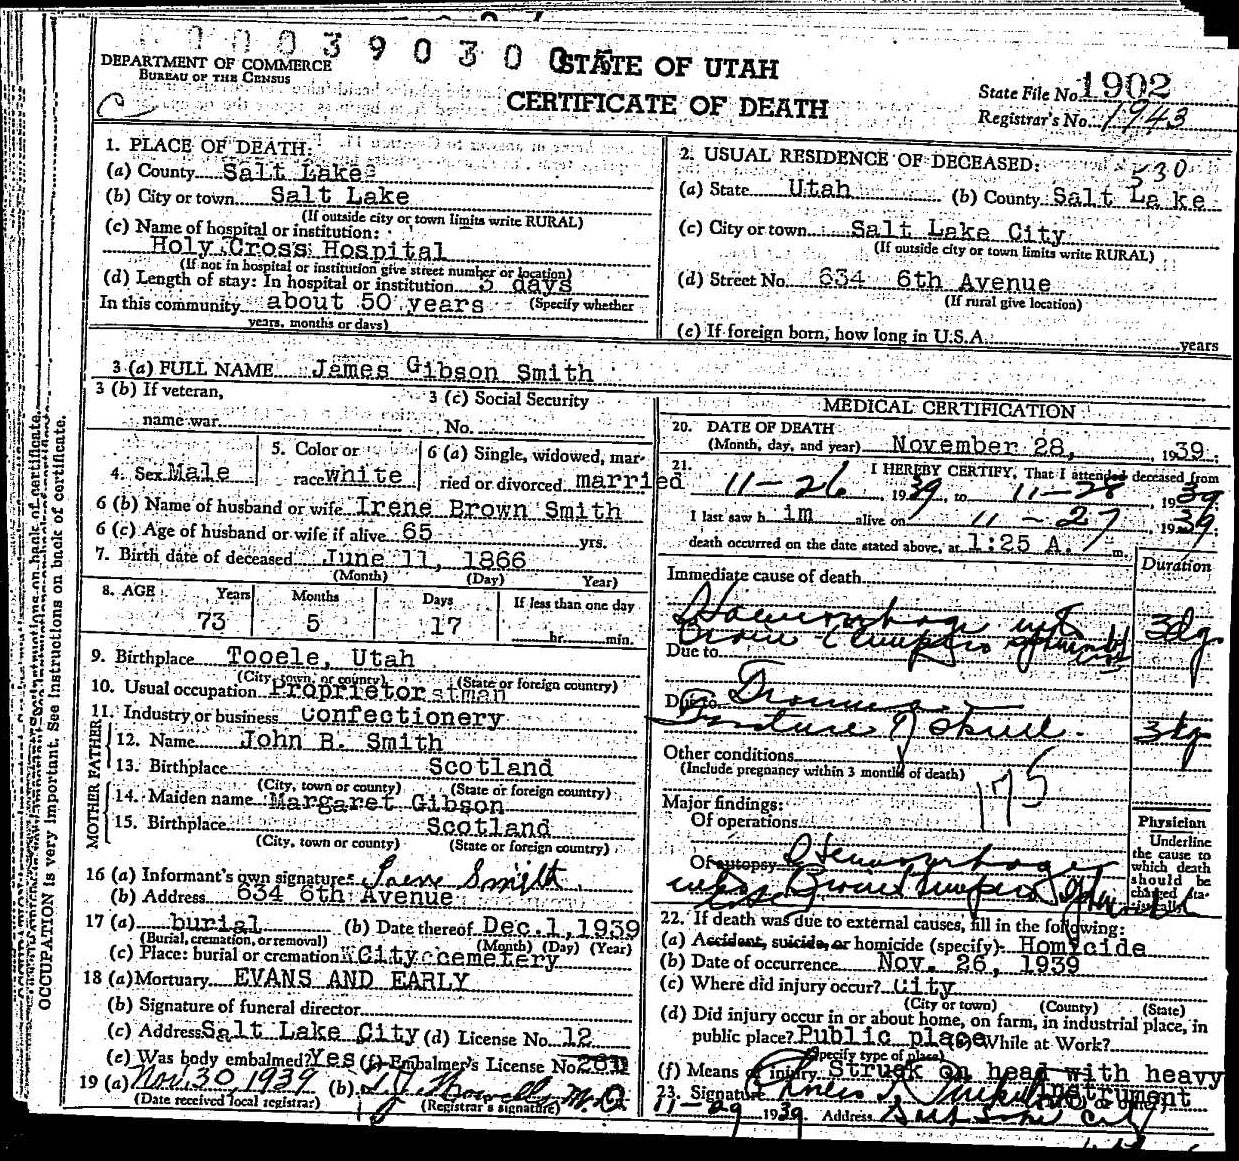 00039030
DEPARTMENT OF COMMERCE
BUREAU OF THE CENSUS
STATE OF UTAH
CERTIFICATE OF DEATH
State File No. 1902
Registrar's No. 1943
1. PLACE OF DEATH:
(a) County Salt Lake
(b) City or town Salt Lake
(If outside city or town limits write RURAL)
(c) Name of hospital or institution:
Holy Cross Hospital
(If not in hospital or institution give street number or location)
(d) Length of stay: In hospital or institution 3 days
In this community about 50 years (Specify whether
years, months or days)
2. USUAL RESIDENCE OF DECEASED:
530
(a) State Utah (b) County Salt Lake
(c) City or town Salt Lake City
(If outside city or town limits write RURAL)
(d) Street No. 634 6th Avenue
(If rural give location)
(e) If foreign born, how long in U.S.A. years
3 (a) FULL NAME James Gibson Smith
3 (b) If veteran,
name war
3 (c) Social Security
No.
4. Sex Male
5. Color or
race white
6 (a) Single, widowed, mar-
ried or divorced married
6 (b) Name of husband or wife Irene Brown Smith
6 (c) Age of husband or wife if alive 65 yrs.
7. Birth date of deceased June 11, 1866
(Month) (Day) Year)
8. AGE Years Months Days If less than one day
73 5 17 hr. min.
9. Birthplace Tooele, Utah
(City, town, or county) (State or foreign country)
10. Usual occupation Proprietor
11. Industry or business Confectionery
FATHER
12. Name John B. Smith
13. Birthplace Scotland
(City, town or county) (State or foreign country)
MOTHER
14. Maiden name Margaret Gibson
15. Birthplace Scotland
(City, town or county) (State or foreign country)
16 (a) Informant's own signature Smith
(b) Address 634 6th Avenue
17 (a) burial (b) Date thereof Dec. 1, 1939
(Burial, cremation, or removal) (Month) (Day) (Year)
(c) Place: burial or cremation City cemetery
18 (a) Mortuary EVANS AND EARLY
(b) Signature of funeral director
(c) Address Salt Lake City (d) License No. 12
(e) Was body embalmed? Yes (f) Embalmer's License No.
19 (a) Nov. 30, 1939 (b) M.D.
(Date received local registrar) (Registrar's signature)
MEDICAL CERTIFICATION
20. DATE OF DEATH
(Month, day, and year) November 28, 1939.
21. I HEREBY CERTIFY, That I attended deceased from
11-26, 1939, to 11-28, 1939
I last saw h im alive on 11-27, 1939;
death occurred on the date stated above, at 1:25 A. m.
Duration
Immediate cause of death
Haemorrhage into 3 dys
Due to
Due to Trauma
Fracture of skull. 3 dys
Other conditions
(Include pregnancy within 3 months of death)
175
Major findings:
Of operations
Of autopsy Haemorrhage
Physician
Underline
the cause to
which death
should be
charged sta-
tistically
22. If death was due to external causes, fill in the following:
(a) Accident, suicide, or homicide (specify) Homicide
(b) Date of occurrence Nov. 26, 1939
(c) Where did injury occur? City
(City or town) (County) (State)
(d) Did injury occur in or about home, on farm, in industrial place, in
public place? Public place (e) While at Work?
(Specify type of place)
(f) Means of injury Struck on head with heavy
instrument
23. Signature
11-29 1939 Address Salt Lake City
OCCUPATION is very important. See instructions on back of certificate.